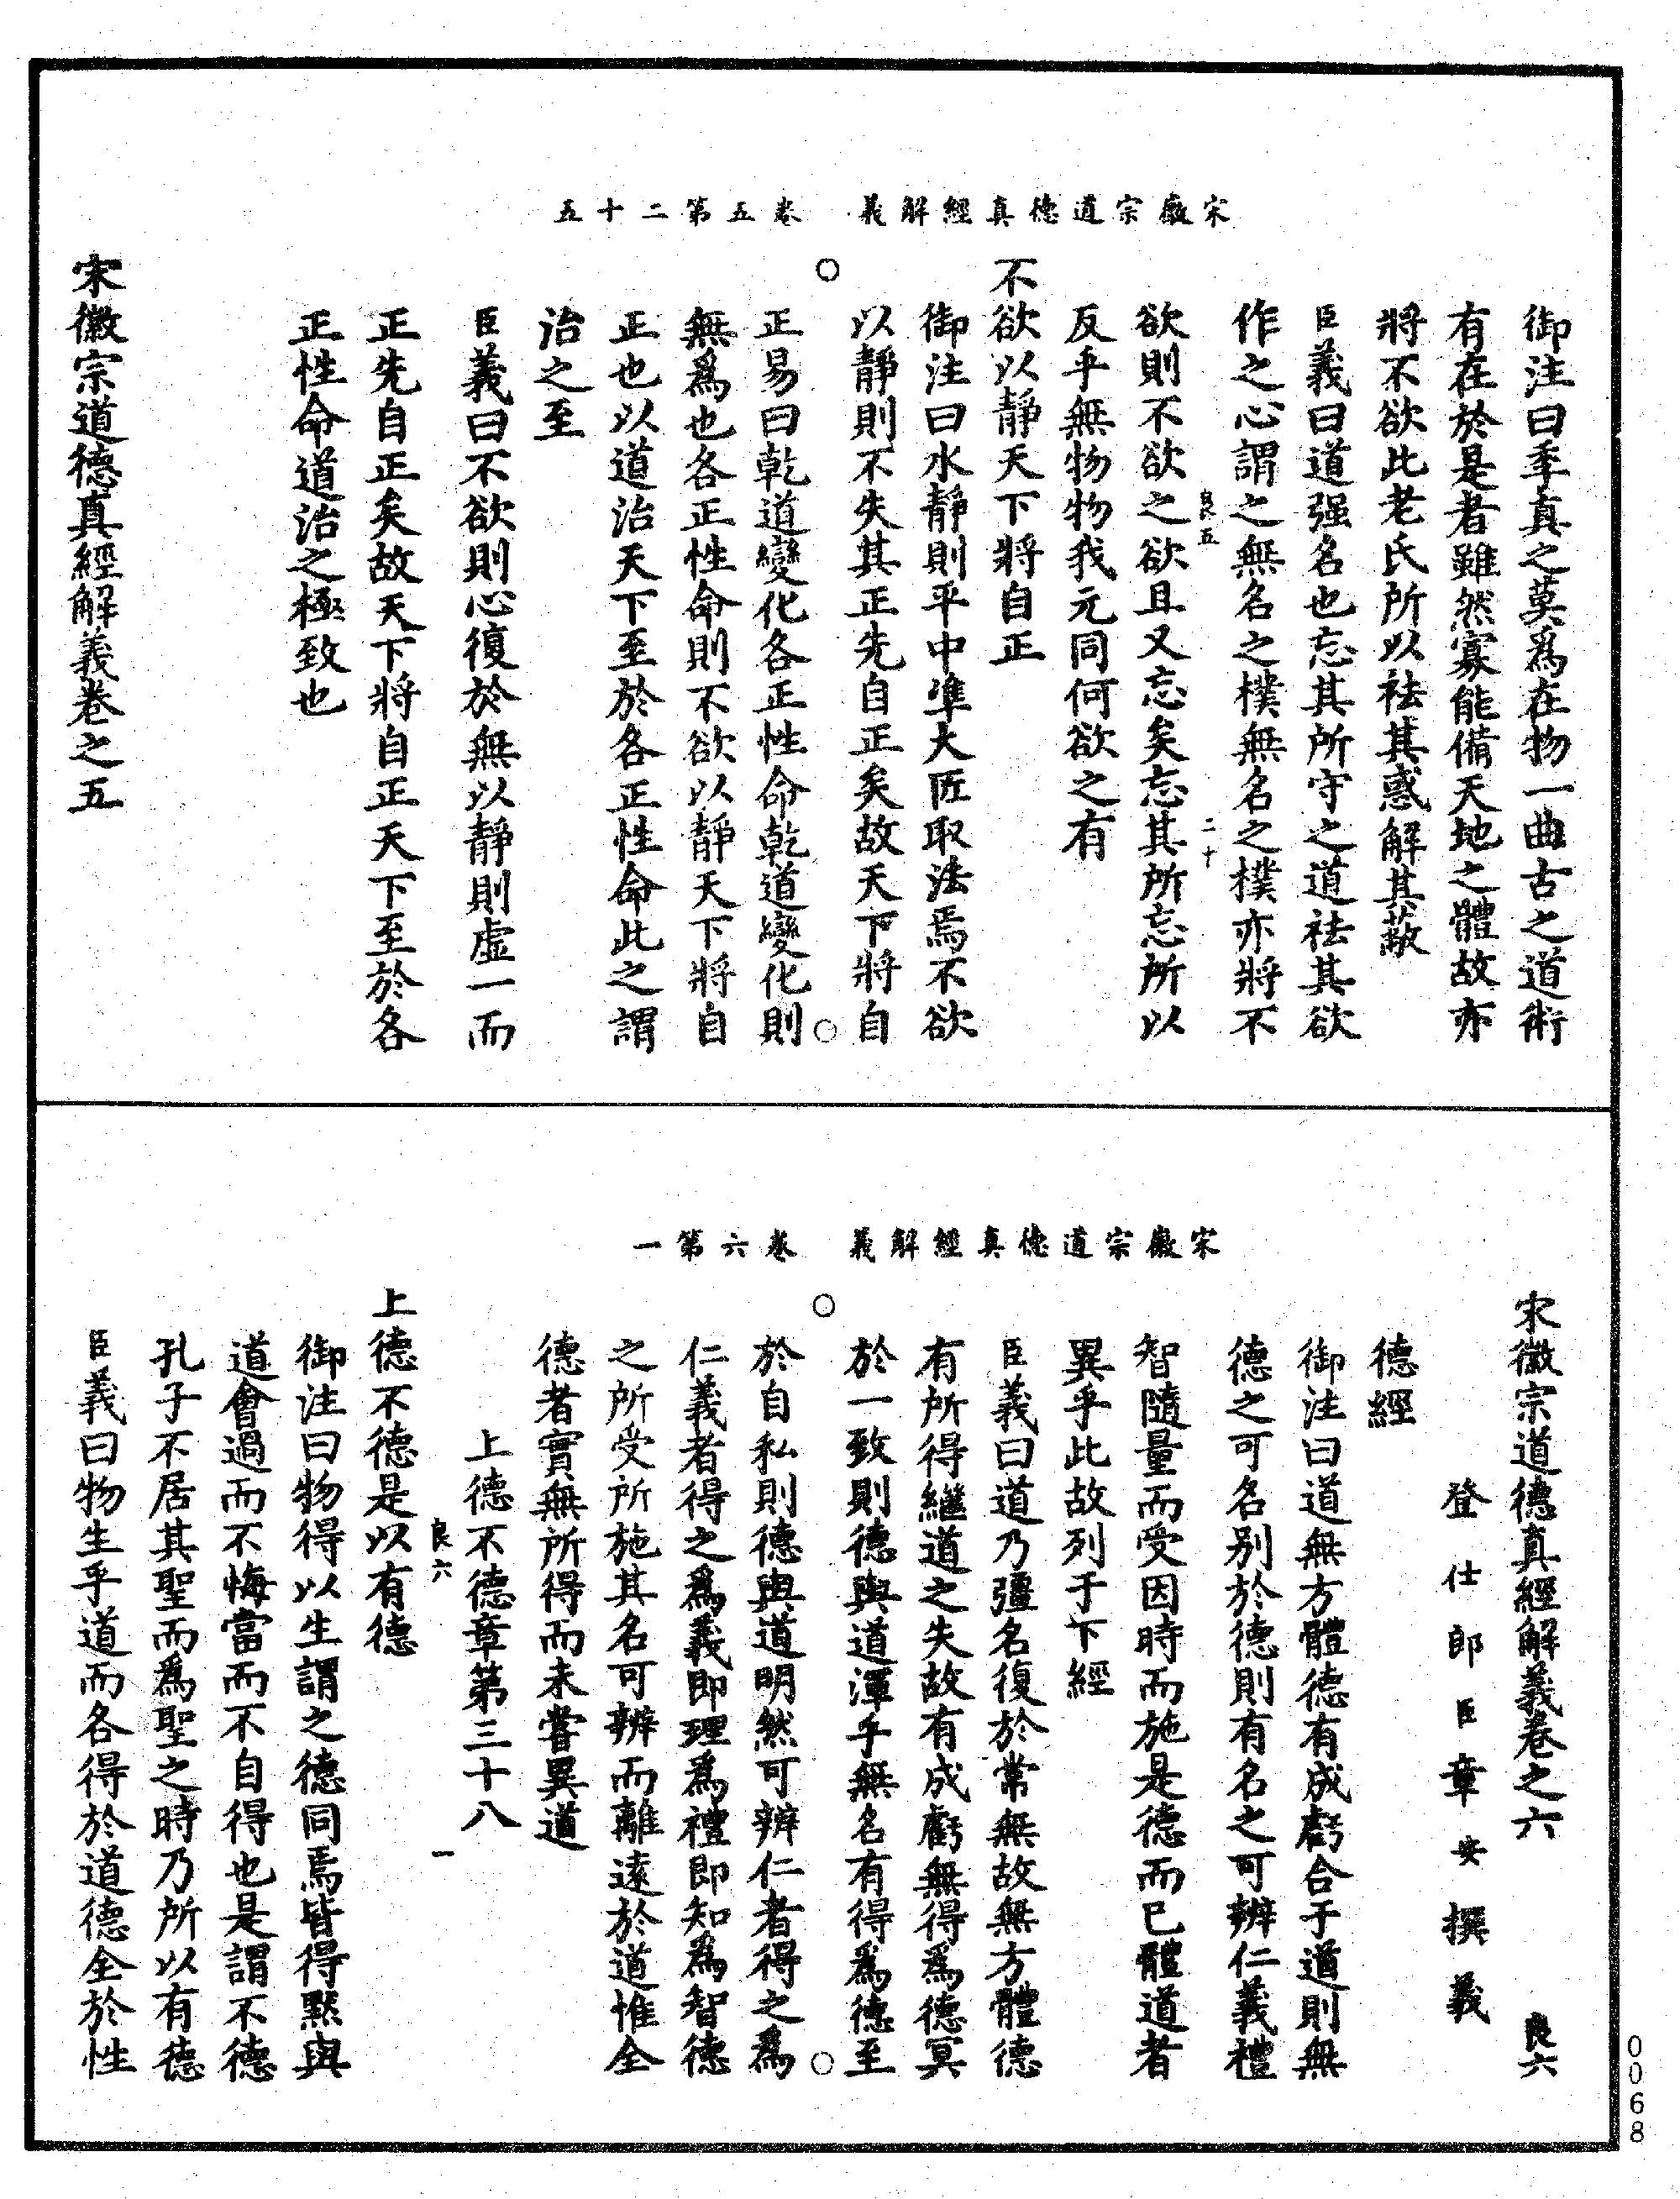 宋徽宗道德真經解義　卷五第二十五
御注曰季真之莫爲在物一曲古之道術
有在於是者雖然寡能備天地之體故亦
將不欲此老氏所以祛其惑解其蔽
臣義曰道强名也忘其所守之道祛其欲
作之心謂之無名之樸無名之樸亦將不
良五　二十
欲則不欲之欲且又忘矣忘其所忘所以
反乎無物物我元同何欲之有
不欲以靜天下將自正
御注曰水靜則平中準大匠取法焉不欲
以靜則不失其正先自正矣故天下將自
正易曰乾道變化各正性命乾道變化則
無爲也各正性命則不欲以靜天下將自
正也以道治天下至於各正性命此之謂
治之至
臣義曰不欲則心復於無以靜則虛一而
正先自正矣故天下將自正天下至於各
正性命道治之極致也
宋徽宗道德真經解義卷之五
宋徽宗道德真經解義　卷六第一
宋徽宗道德真經解義卷之六　良六
登仕郎臣章安撰義
德經
御注曰道無方體德有成虧合于道則無
德之可名别於德則有名之可辨仁義禮
智隨量而受因時而施是德而已體道者
異乎此故列于下經
臣義曰道乃彊名復於常無故無方體德
有所得繼道之失故有成虧無得爲德冥
於一致則德與道渾乎無名有得爲德至
於自私則德與道明然可辨仁者得之爲
仁義者得之爲義即理爲禮即知爲智德
之所受所施其名可辨而離遠於道惟全
德者實無所得而未嘗異道
上德不德章第三十八
良六　一
上德不德是以有德
御注曰物得以生謂之德同焉皆得默與
道會過而不悔當而不自得也是謂不德
孔子不居其聖而爲聖之時乃所以有德
臣義曰物生乎道而各得於道德全於性
0068